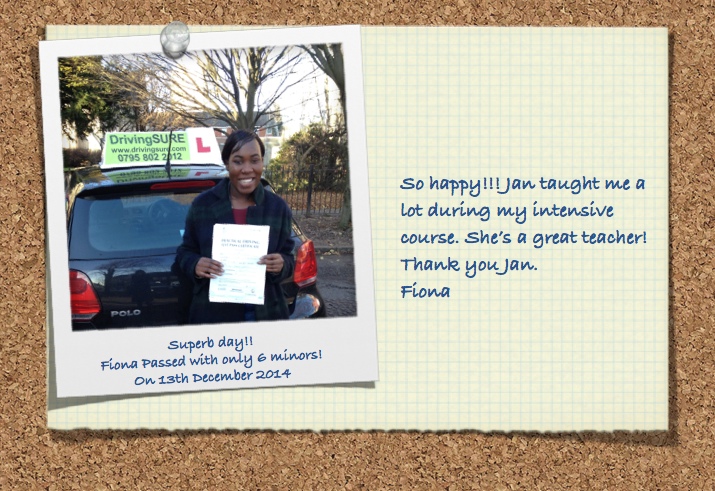 DrivingSURE
www.drivingsure.com
0795 802 2012
L
POLO
Superb day!!
Fiona Passed with only 6 minors!
On 13th December 2014
So happy!!! Jan taught me a
lot during my intensive
course. She's a great teacher!
Thank you Jan.
Fiona